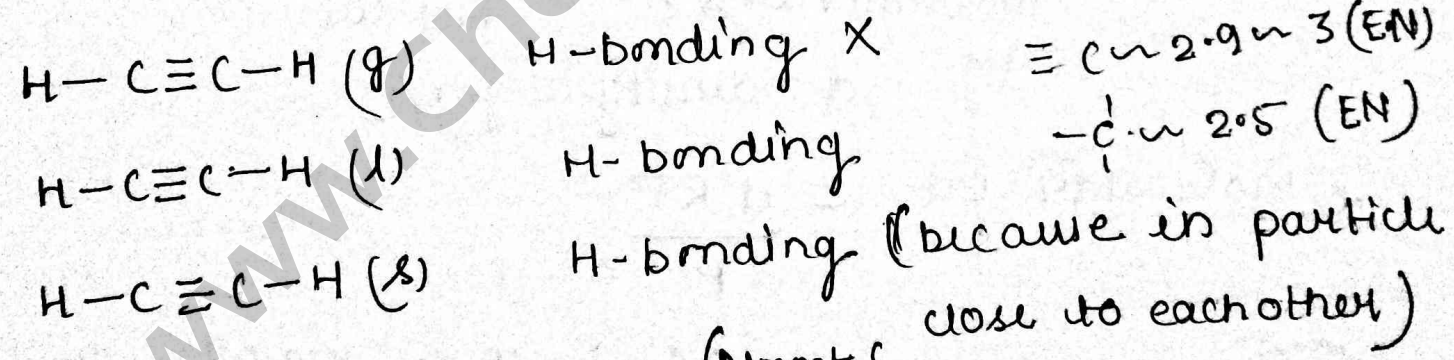 H-C≡C-H (g) H-bonding X ≡C~2.9~3 (EN)
H-C≡C-H (l) H-bonding -C-~2.5 (EN)
H-C≡C-H (s) H-bonding (because in particle
close to eachother)
www.ch